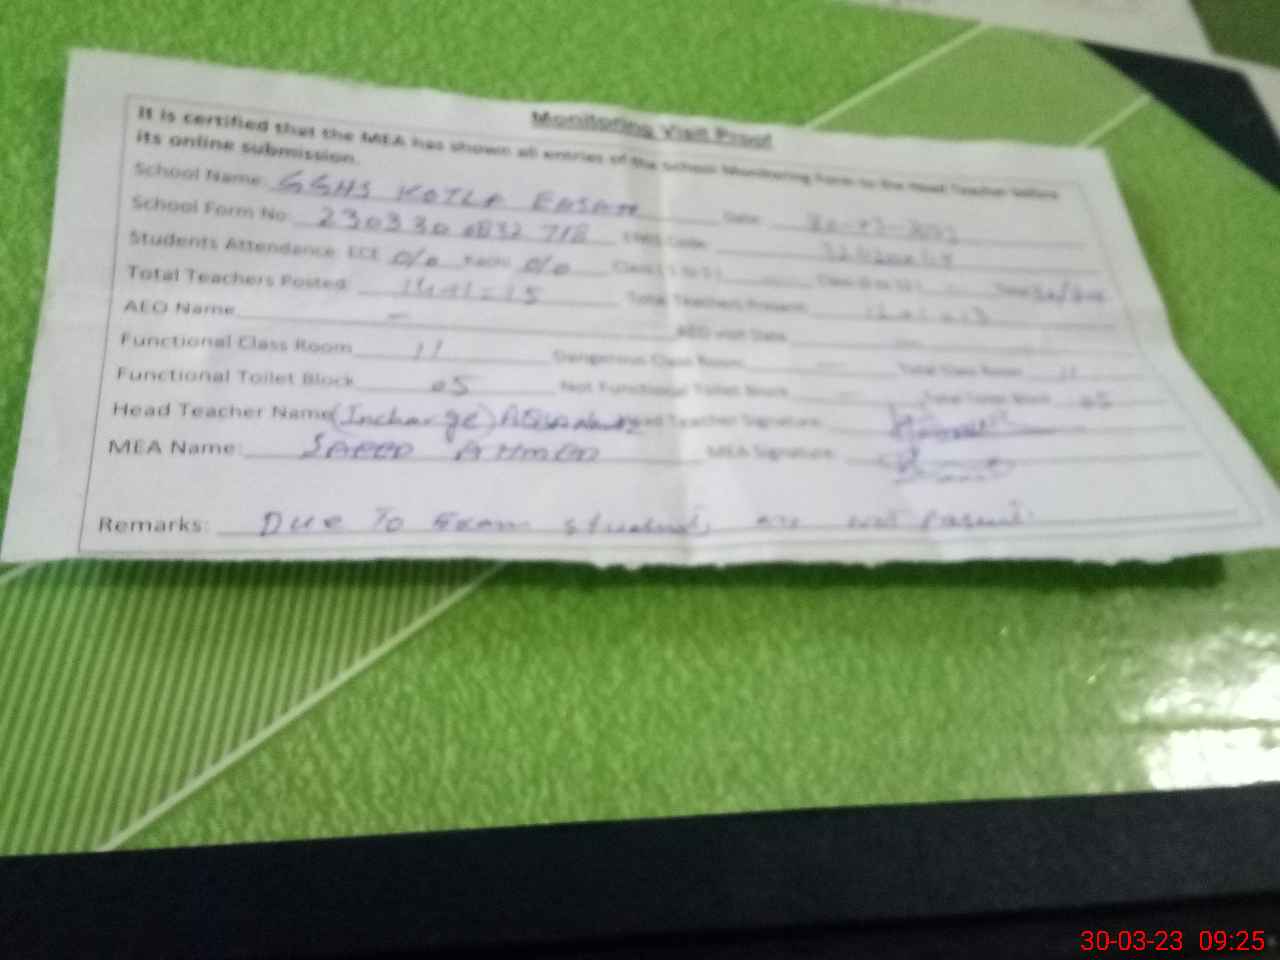 Monitoring Visit Proof
It is certified that the MEA has shown all entries of the School Monitoring Form to the Head Teacher before
its online submission.
School Name: GGHS KOTLA Date: 30-03-2023
School Form No: 230330 0832 718 EMIS Code:
Students Attendance: ECE 0/0 Katchi 0/0 Class ( 1 to 5 ) Class (6 to 12 ) Total
Total Teachers Posted 14+1=15 Total Teachers Present 12+1=13
AEO Name — AEO visit Date —
Functional Class Room 11 Dangerous Class Room — Total Class Room 11
Functional Toilet Block 05 Not Functional Toilet Block — Total Toilet Block 05
Head Teacher Name (Incharge) Head Teacher Signature
MEA Name: SAEED AHMED MEA Signature
Remarks: Due To Exam students are not present.
30-03-23 09:25